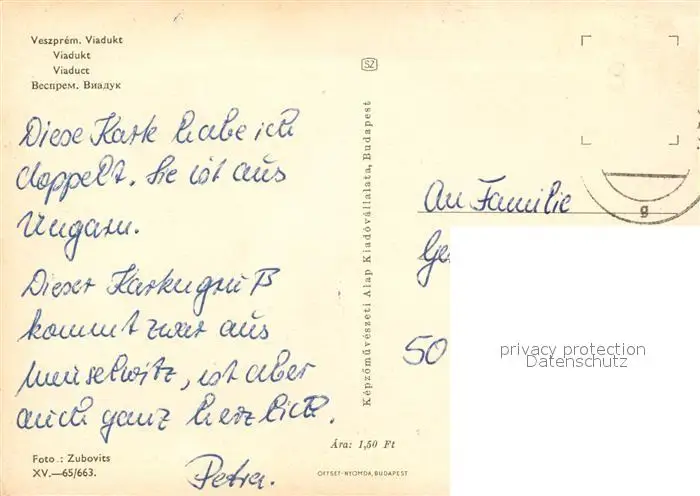 Veszprém. Viadukt
Viadukt
Viaduct
Веспрем. Виадук
Diese Karte habe ich
doppelt. Sie ist aus
Ungarn.
Dieser Kartengruß
kommt zwar aus
Meuselwitz, ist aber
auch ganz herzlich.
Petra.
Foto.: Zubovits
XV.—65/663.
SZ
Képzőművészeti Alap Kiadóvállalata, Budapest
Ára: 1,50 Ft
OFFSET-NYOMDA, BUDAPEST
g
An Familie
Ge
50
privacy protection
Datenschutz